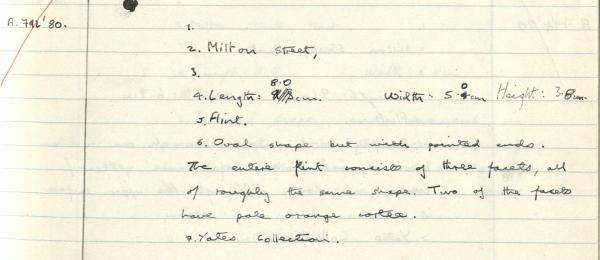 A.792'80.
1.
2. Milton Street,
3.
8.0
4. Length: cm. Width: 5.0cm Height: 3.8cm.
5. Flint.
6. Oval shape but with pointed ends.
The entire flint consists of three facets, all
of roughly the same shape. Two of the facets
have pale orange cortex.
7. Yates Collection.